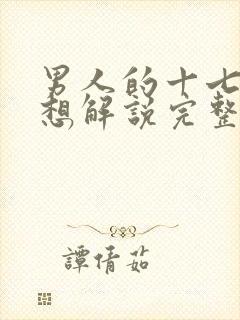 男人的十七
想解說完整
譚倩茹